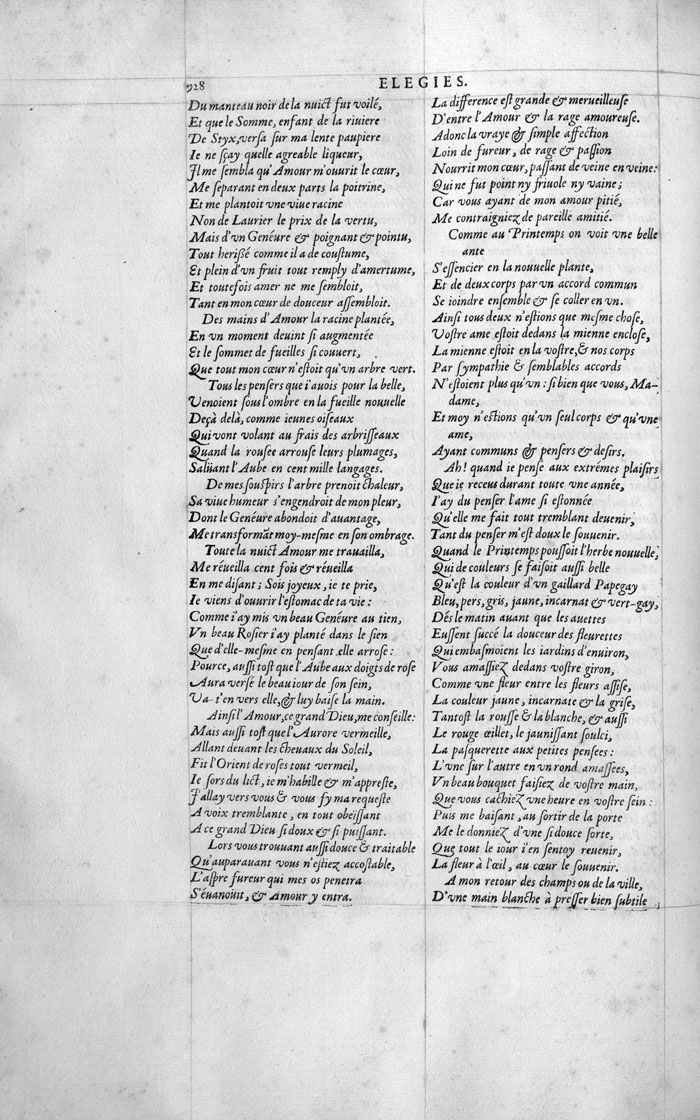 928
ELEGIES.
Du manteau noir de la nuict fut voilé,
Et que le Somme, enfant de la riuiere
De Styx, versa sur ma lente paupiere
Ie ne sçay quelle agreable liqueur,
Il me sembla qu'Amour m'ouurit le cœur,
Me separant en deux parts la poitrine,
Et me plantoit vne viue racine
Non de Laurier le prix de la vertu,
Mais d'vn Genéure & poignant & pointu,
Tout herißé comme il a de coustume,
Et plein d'vn fruit tout remply d'amertume,
Et toutefois amer ne me sembloit,
Tant en mon cœur de douceur assembloit.
Des mains d'Amour la racine plantée,
En vn moment deuint si augmentée
Et le sommet de fueilles si couuert,
Que tout mon cœur n'estoit qu'vn arbre vert.
Tous les pensers que i'auois pour la belle,
Venoient sous l'ombre en la fueille nouuelle
Deçà delà, comme ieunes oiseaux
Qui vont volant au frais des arbrisseaux
Quand la rousee arrouse leurs plumages,
Salüant l'Aube en cent mille langages.
De mes souspirs l'arbre prenoit chaleur,
Sa viue humeur s'engendroit de mon pleur,
Dont le Genéure abondoit d'auantage,
Me transformãt moy-mesme en son ombrage.
Toute la nuict Amour me trauailla,
Me réueilla cent fois & réueilla
En me disant; Sois joyeux, ie te prie,
Ie viens d'ouurir l'estomac de ta vie:
Comme i'ay mis vn beau Genéure au tien,
Vn beau Rosier i'ay planté dans le sien
Que d'elle-mesme en pensant elle arrose:
Pource, außi tost que l'Aube aux doigts de rose
Aura versé le beau iour de son sein,
Va-t'en vers elle, & luy baise la main.
Ainsi l'Amour, ce grand Dieu, me conseille:
Mais außi tost que l'Aurore vermeille,
Allant deuant les cheuaux du Soleil,
Fit l'Orient de roses tout vermeil,
Ie sors du lict, ie m'habille & m'appreste,
J'allay vers vous & vous fy ma requeste
A voix tremblante, en tout obeïssant
A ce grand Dieu si doux & si puissant.
Lors vous trouuant außi douce & traitable
Qu'auparauant vous n'estiez accostable,
L'aspre fureur qui mes os penetra
S'éuanoüit, & Amour y entra.
La difference est grande & merueilleuse
D'entre l'Amour & la rage amoureuse.
Adonc la vraye & simple affection
Loin de fureur, de rage & passion
Nourrit mon cœur, passant de veine en veine:
Qui ne fut point ny friuole ny vaine;
Car vous ayant de mon amour pitié,
Me contraigniez de pareille amitié.
Comme au Printemps on voit vne belle
ante
S'essencier en la nouuelle plante,
Et de deux corps par vn accord commun
Se ioindre ensemble & se coller en vn.
Ainsi tous deux n'estions que mesme chose,
Vostre ame estoit dedans la mienne enclose,
La mienne estoit en la vostre, & nos corps
Par sympathie & semblables accords
N'estoient plus qu'vn: si bien que vous, Ma-
dame,
Et moy n'estions qu'vn seul corps & qu'vne
ame,
Ayant communs & pensers & desirs.
Ah! quand ie pense aux extrémes plaisirs
Que ie receus durant toute vne année,
I'ay du penser l'ame si estonnée
Qu'elle me fait tout tremblant deuenir,
Tant du penser m'est doux le souuenir.
Quand le Printemps poussoit l'herbe nouuelle,
Qui de couleurs se faisoit außi belle
Qu'est la couleur d'vn gaillard Papegay
Bleu, pers, gris, jaune, incarnat & vert-gay,
Dés le matin auant que les auettes
Eussent succé la douceur des fleurettes
Qui embasmoient les iardins d'enuiron,
Vous amaßiez dedans vostre giron,
Comme vne fleur entre les fleurs assise,
La couleur jaune, incarnate & la grise,
Tantost la rousse & la blanche, & außi
Le rouge œillet, le jaunissant soulci,
La pasquerette aux petites pensees:
L'vne sur l'autre en vn rond amassées,
Vn beau bouquet faisiez de vostre main,
Que vous cachiez vne heure en vostre sein:
Puis me baisant, au sortir de la porte
Me le donniez d'vne si douce sorte,
Que tout le iour i'en sentoy reuenir,
La fleur à l'œil, au cœur le souuenir.
A mon retour des champs ou de la ville,
D'vne main blanche à presser bien subtile